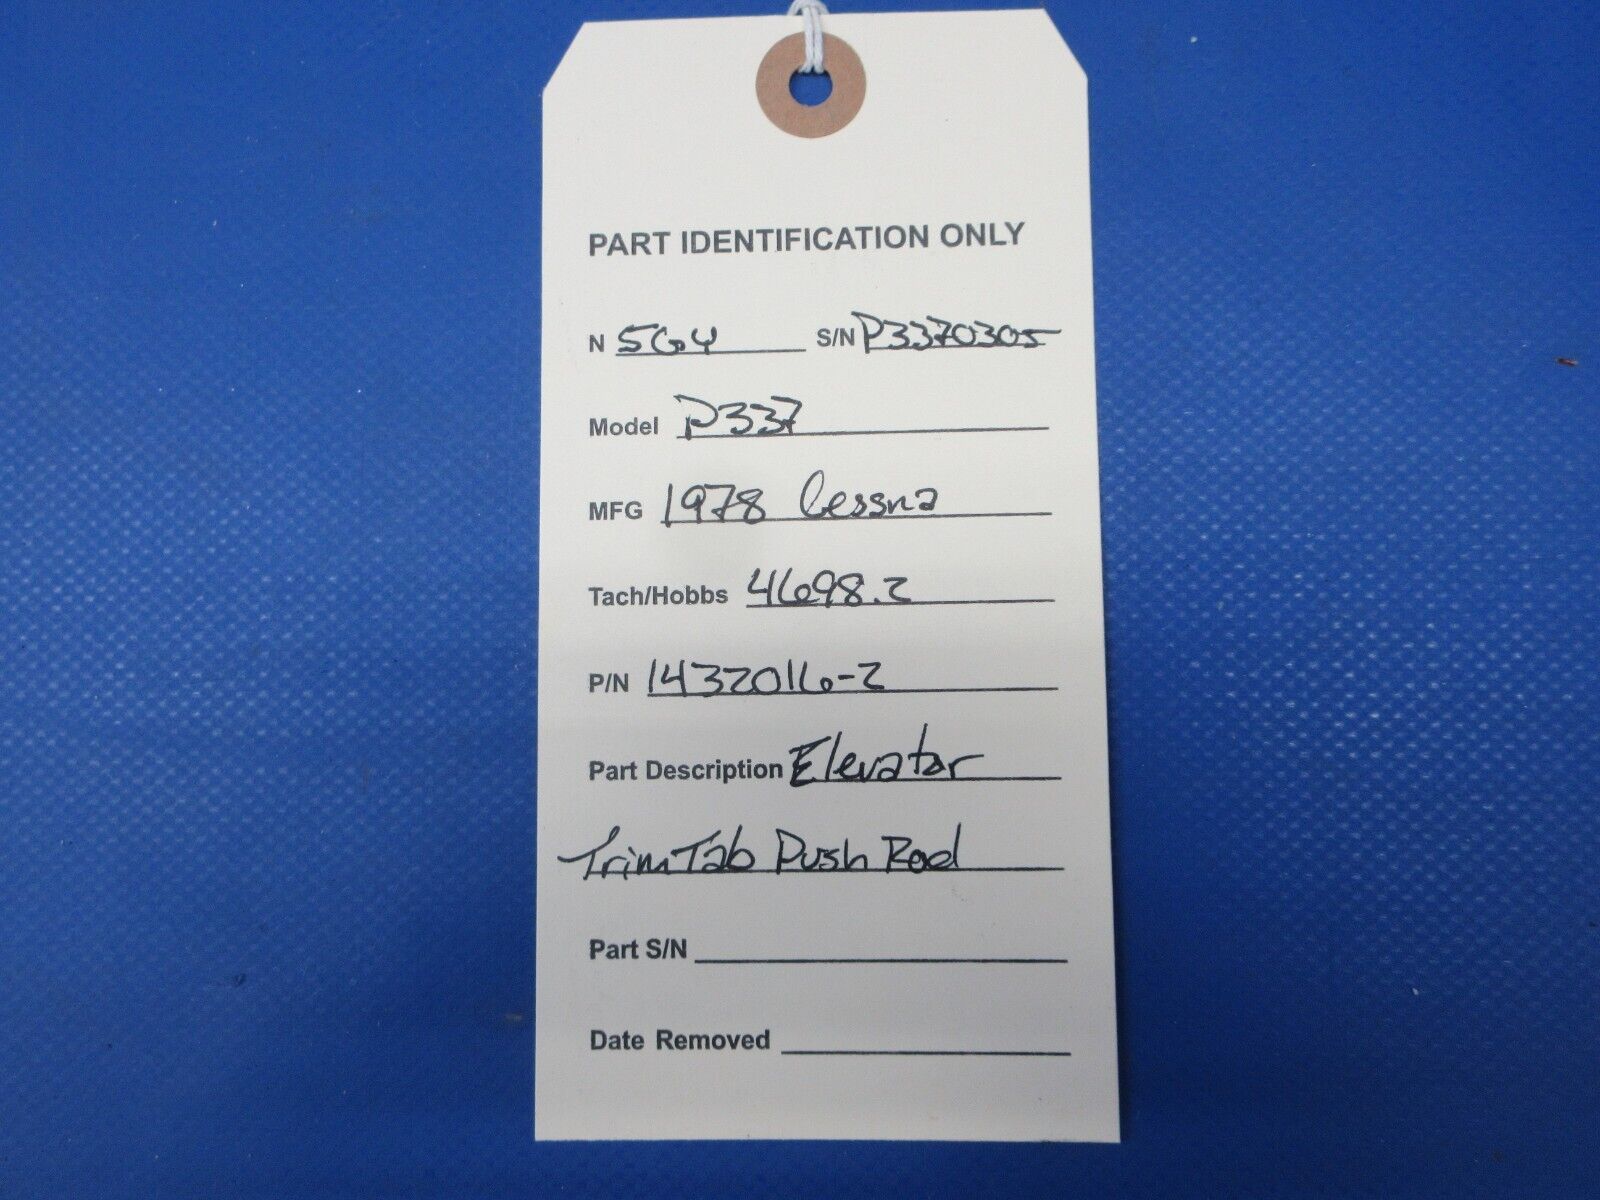 PART IDENTIFICATION ONLY
N 5GY S/N P3370305
Model P337
MFG 1978 Cessna
Tach/Hobbs 4698.2
P/N 1432016-2
Part Description Elevator
Trim Tab Push Rod
Part S/N
Date Removed